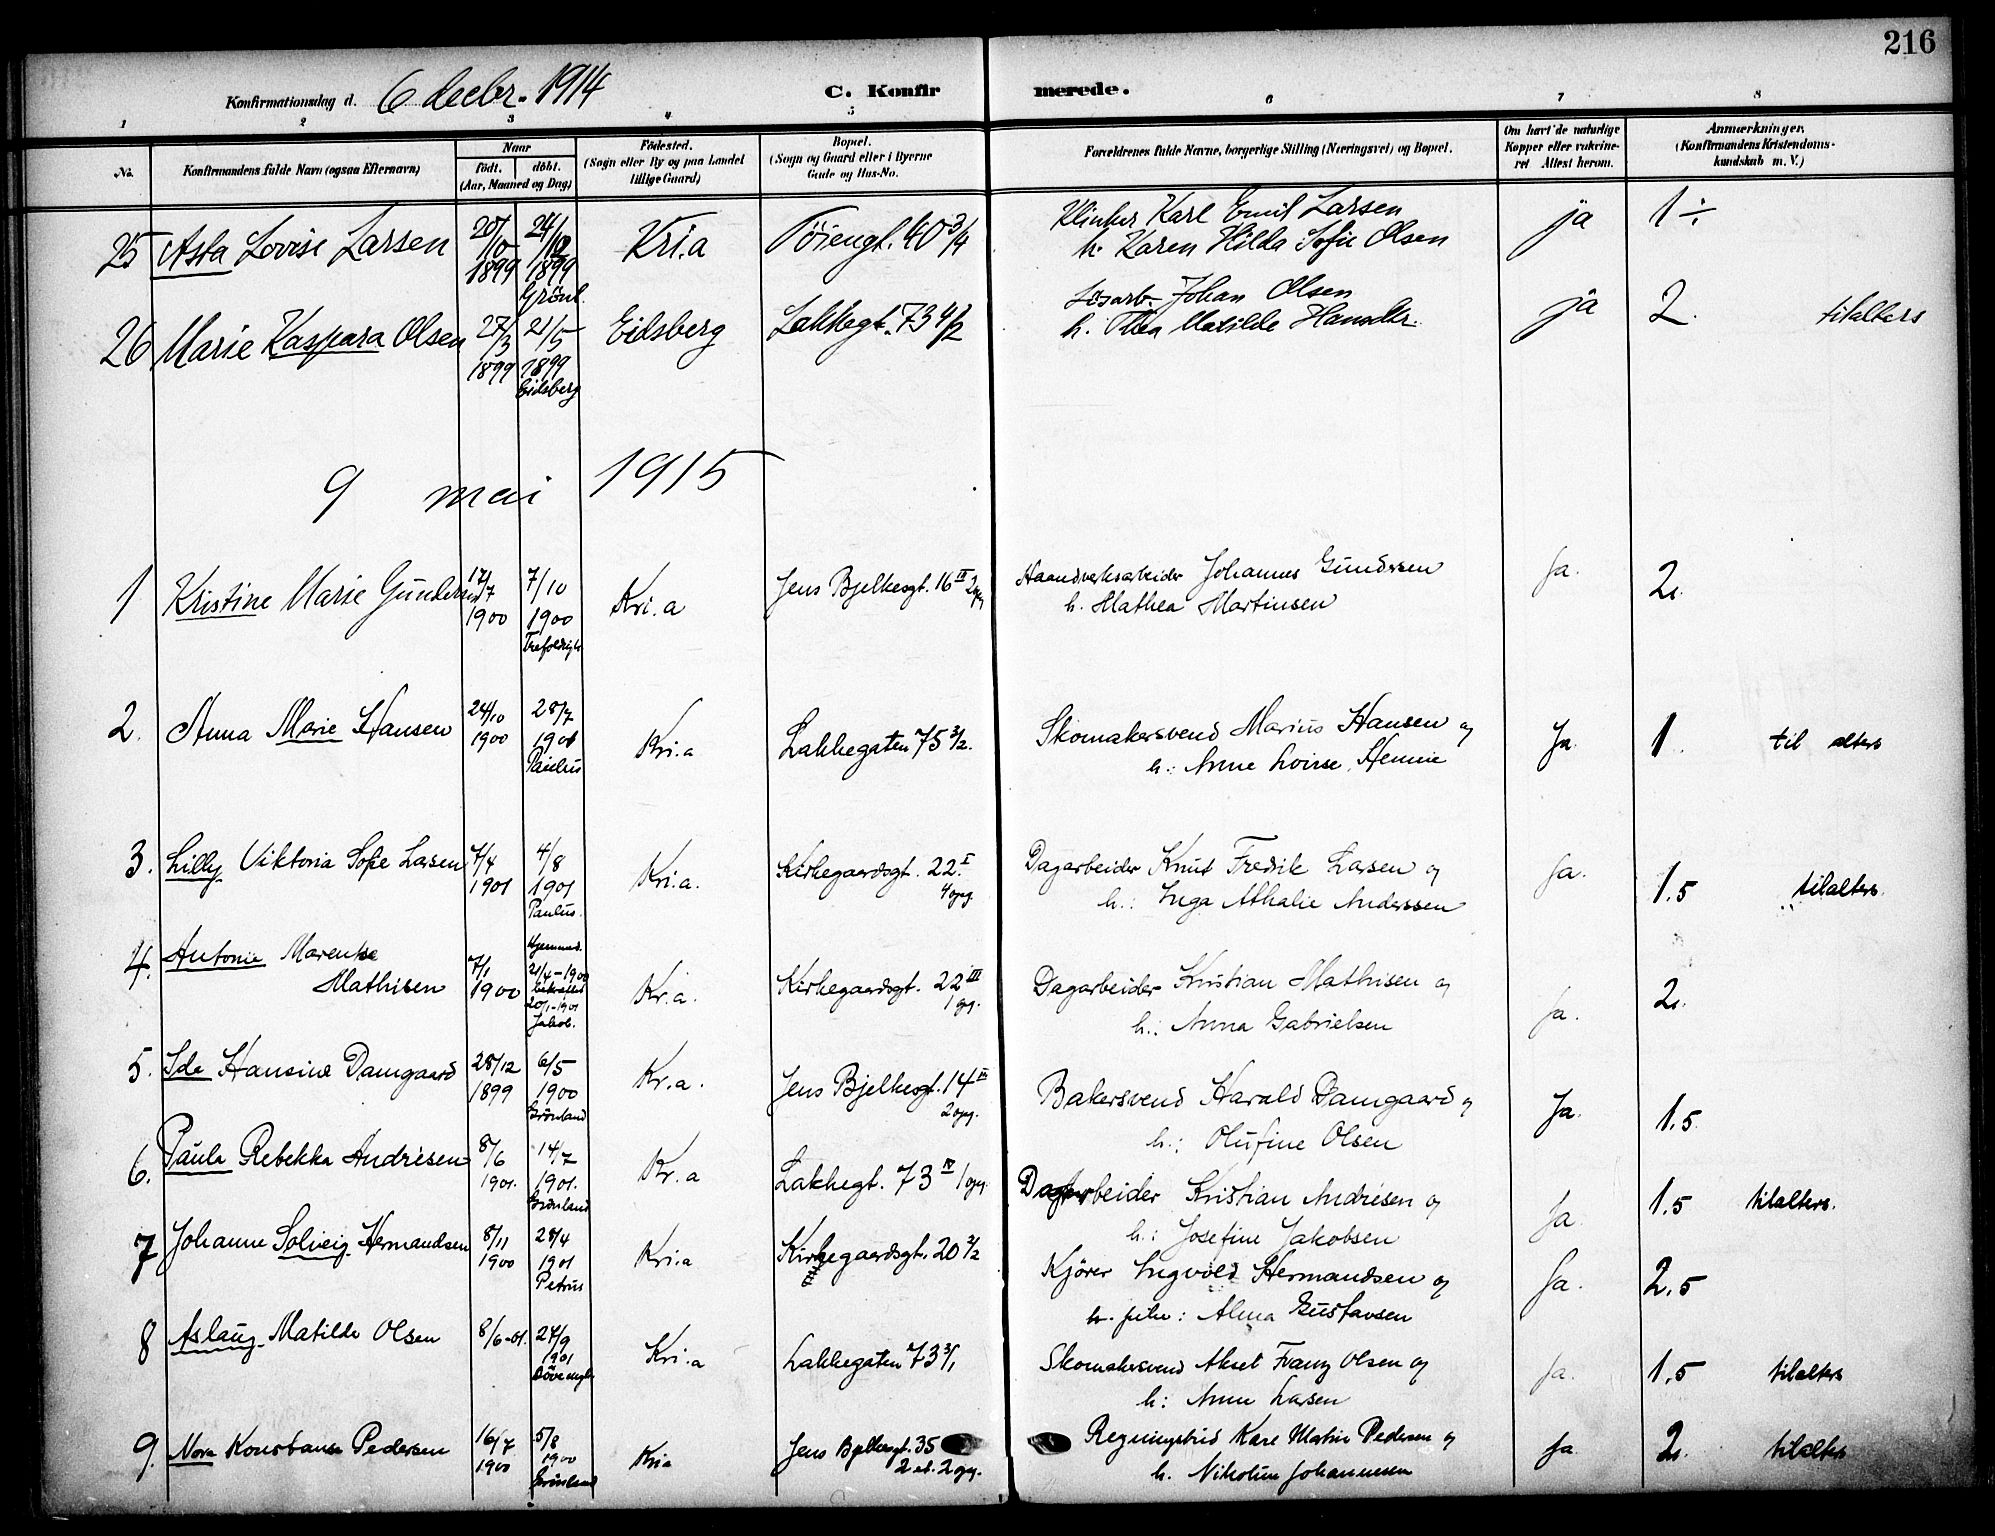 216
Konfirmationsdag d. 6 decbr. 1914
C. Konfirmerede.
1 2 3 4 5 6 7 8
No.
Konfirmandens fulde Navn (ogsaa Efternavn)
Naar
födt. döbt.
(Aar, Maaned og Dag)
Födested.
(Sogn eller By og paa Landet
tillige Gaard)
Bopæl.
(Sogn og Gaard eller i Byerne
Gade og Hus-No.
Forældrenes fulde Navne, borgerlige Stilling (Næringsvei) og Bopæl.
Om havt de naturlige
Kopper eller vakcine-
ret Attest herom.
Anmærkninger.
(Konfirmandens Kristendoms-
kundskab m. V.)
25 Asta Lovise Larsen 20/10 1899 24/12 1899 Grönl. Kri.a Töiengt. 40 3/4 Klinker Karl Emil Larsen
h. Karen Hilda Sofie Olsen ja 1 ÷
26 Marie Kaspara Olsen 27/3 1899 21/5 1899 Eidsberg Eidsberg Lakkegt. 73 4/2 Losarb. Johan Olsen
h. Thea Matilde ja 2. tilalters
9 mai 1915
1 Kristine Marie Gundersen 17/7 1900 7/10 1900 Trefoldigh. Kri.a Jens Bjelkesgt. 16 II 2 opg Haandverksarbeider Johannes Gundersen
h. Mathea Martinsen Ja. 2.
2. Anna Marie Hansen 24/10 1900 28/7 1901 Paulus Kri.a Lakkegaten 75 3/2. Skomakersvend Marius Hansen og
h.: Anne Lovise Ja. 1. til alters
3. Lilly Viktoria Sofie Larsen 7/4 1901 4/8 1901 Paulus. Kri.a. Kirkegaardsgt. 22 I 4 opg. Dagarbeider Knut Fredrik Larsen og
h.: Inga Athalie Anderssen Ja. 1.5 tilalters.
4. Antonie Marentse
Mathisen 7/1 1900 Hjemmed. 21/4-1900 bekræftet 20/1-1901 Jakob. Kr.a. Kirkegaardsgt. 22 III 1 opg. Dagarbeider Kristian Mathisen og
h.: Anna Gabrielsen Ja. 2.
5. Ida Hansine Damgaard 28/12 1899 6/5 1900 Grönland Kr.a. Jens Bjelkesgt. 14 III 2 opg. Bakersvend Harald Damgaard og
h.: Olufine Olsen Ja. 1.5
6. Paula Rebekka Andrésen 8/6 1901. 14/7 1901. Grönland Kr.a Lakkegt. 73 IV 1 opg. Dagarbeider Kristian Andrésen og
h.: Josefine Jakobsen Ja. 1.5 tilalters.
7 Johanne Solveig Hermandsen 8/11 1900 28/4 1901 Petrus Kri.a Kirkegaardsgt. 20 2/2 Kjörer Ingvold Hermandsen og
h. : Alma Gustavsen Ja. 2.5
8 Aslaug Matilde Olsen 8/6-01. 24/9 1901 Kri.a Lakkegaten 73 3/1 Skomakersvend Aksel Franz Olsen og
h: Anne Larsen Ja. 1.5 tilalters
9. Nora Konstanse Pedersen 16/7 1900 5/8 1900 Grönland Kria Jens Bjelkesgt. 35 2 et. 2 opg. Karl Martin Pedersen og
h. Nikoline Johannesen Ja. 2. tilalters